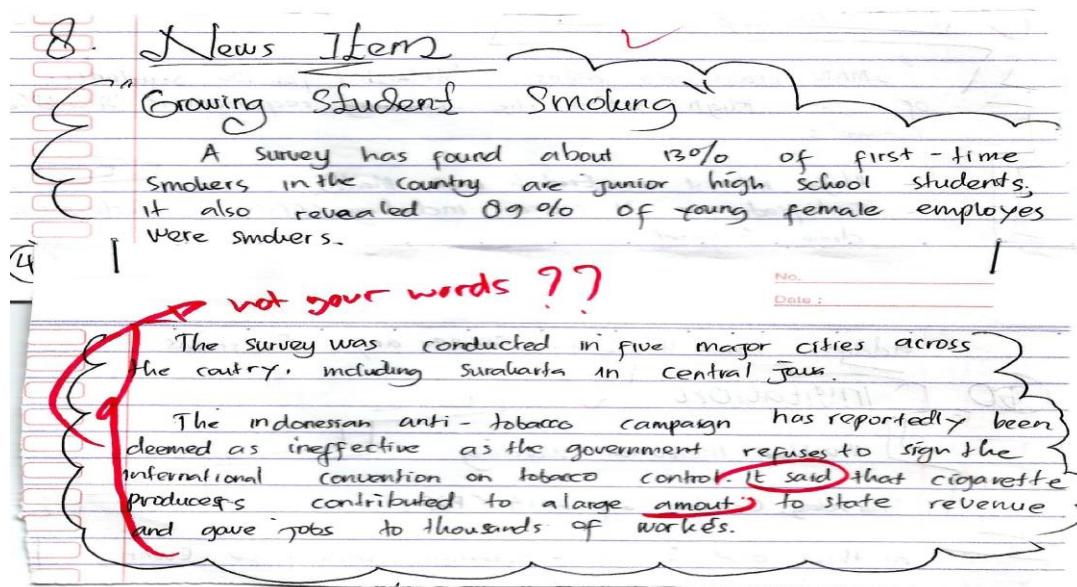 8. News Item
"Growing Student Smoking"
A survey has found about 13% of first-time
smokers in the country are junior high school students,
it also revealed 89% of young female employes
were smokers.
4
not your words ??
No.
Date :
The survey was conducted in five major cities across
the coutry. including Surakarta in central java.
The indonesian anti-tobacco campaign has reportedly been
deemed as ineffective as the government refuses to sign the
international convention on tobacco control. it said that cigarette
producers contributed to a large amout to state revenue
and gave jobs to thousands of workes.